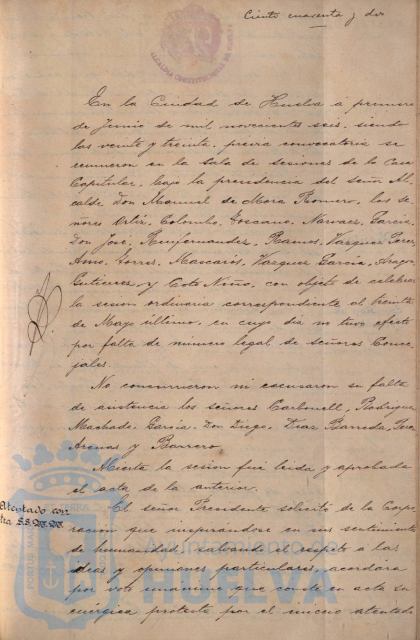 Ciento cuarenta y dos
En la Ciudad de Huelva á primero
de Junio de mil novecientos seis, siendo
las veinte y treinta, previa convocatoria se
reunieron en la Sala de sesiones de la Casa
Capitular, bajo la presidencia del Señor Al-
calde Don Manuel de Mora Romero, los se-
ñores Ortiz, Colombo, Toscano, Narvaez, García
Don José, Ramos, Vazquez Perez,
Torres, Mascarós, Vazquez García, Aragon
Gutierrez y Coto Niño, con objeto de celebrar
la sesion ordinaria correspondiente al treinta
de Mayo último, en cuyo dia no tuvo efecto
por falta de número legal de señores Conce-
jales.
No concurrieron ni escusaron su falta
de asistencia los señores Carbonell, Rodriguez
Machado, García Don Diego, Diaz Barreda, Perez
Arenas y Barrero.
Abierta la sesion fué leida y aprobada
el acta de la anterior.
Atentado con-
tra S.S. M.M.
El señor Presidente solicitó de la Corpo-
racion que inspirándose en sus sentimientos
de humanidad, salvando el respeto á las
ideas y opiniones particulares, acordára
por voto unánime que conste en acta su
enérgica protesta por el inicuo atentado
Ayuntamiento de
HUELVA